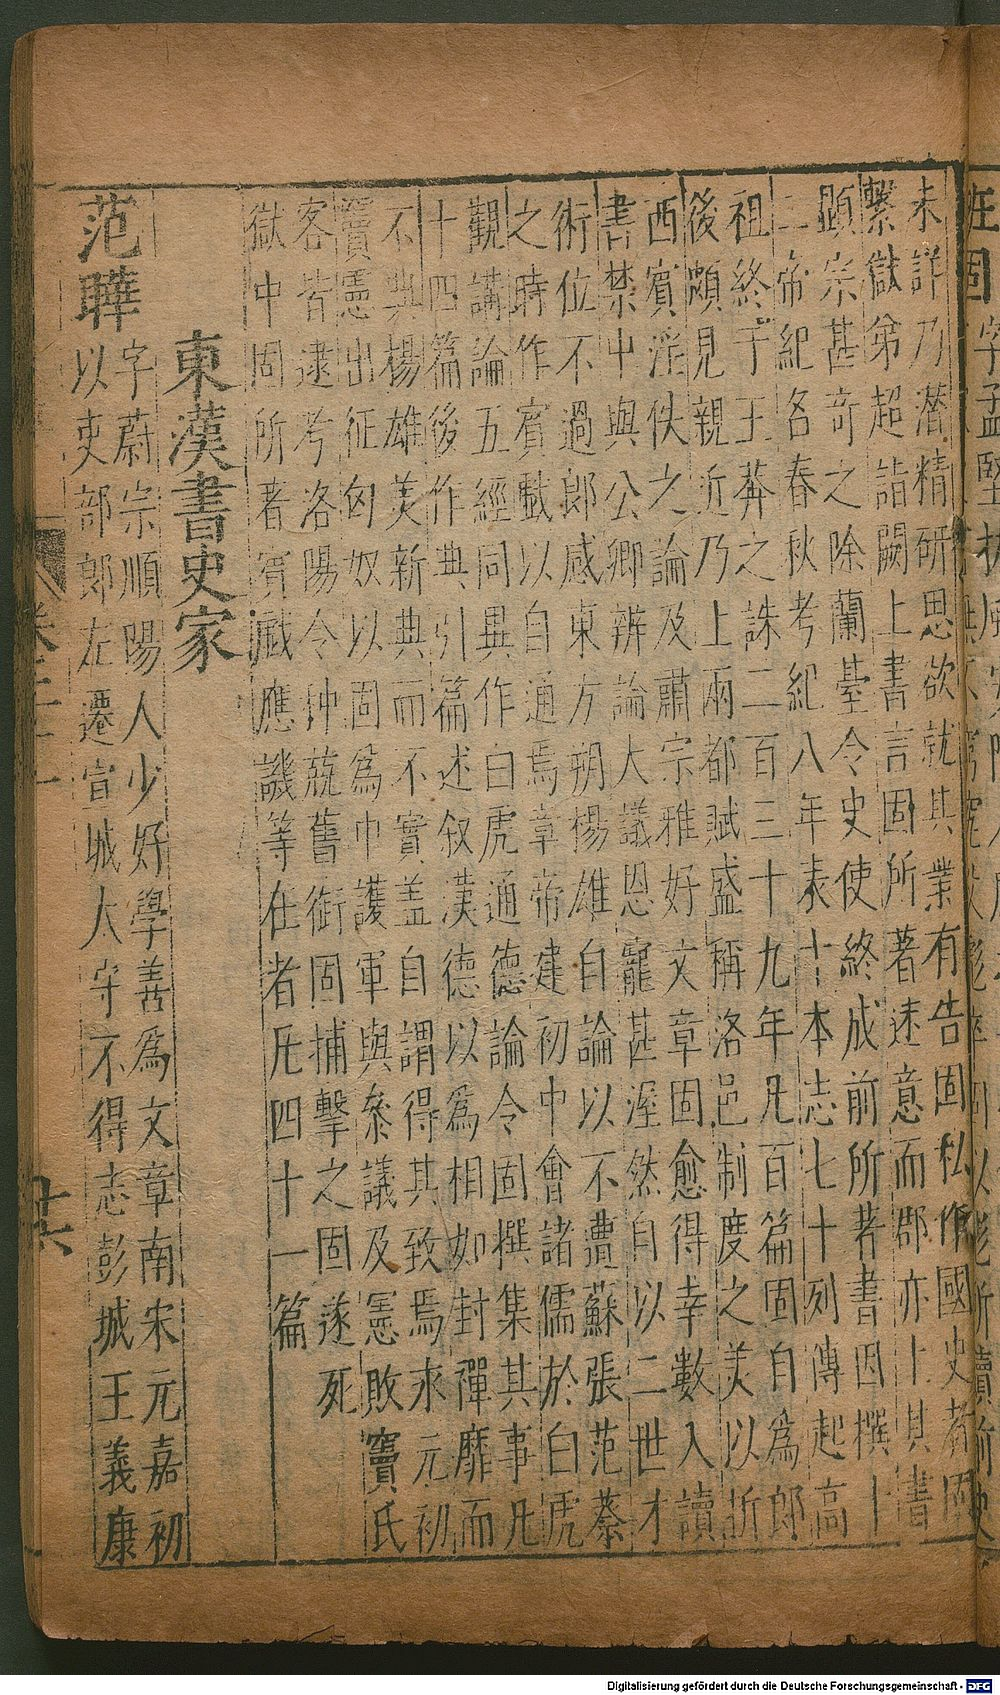 未詳乃潛精研思欲就其業有告固私作國史者固
繫獄弟超詣闕上書言固所著述意而郡亦上其書
顯宗甚奇之除蘭臺令史使終成前所著書因撰十
二帝紀各春秋考紀八年表十本志七十列傳起高
祖終于王莽之誅二百三十九年凡百篇固自為郎
後頗見親近乃上兩都賦盛稱洛邑制度之美以折
西賓淫佚之論及蕭宗雅好文章固愈得幸數入讀
書禁中與公卿辨論大議恩寵甚渥然自以二世才
術位不過郎感東方朔楊雄自論以不遭蘇張范蔡
之時作賓戲以自通焉章帝建初中會諸儒於白虎
觀講論五經同異作白虎通德論令固撰集其事凡
十四篇後作典引篇述叙漢德以為相如封禪靡而
不典楊雄美新典而不實盖自謂得其致焉永元初
竇憲出征匈奴以固為中護軍與叅議及憲敗竇氏
客皆逮考洛陽令种兢舊銜固捕擊之固遂死
獄中固所著賓戲應譏等在者凡四十一篇
東漢書史家
范曄
字蔚宗順陽人少好學善為文章南宋元嘉初
以吏部郎左遷宣城太守不得志彭城王義康
Digitalisierung gefördert durch die Deutsche Forschungsgemeinschaft - DFG